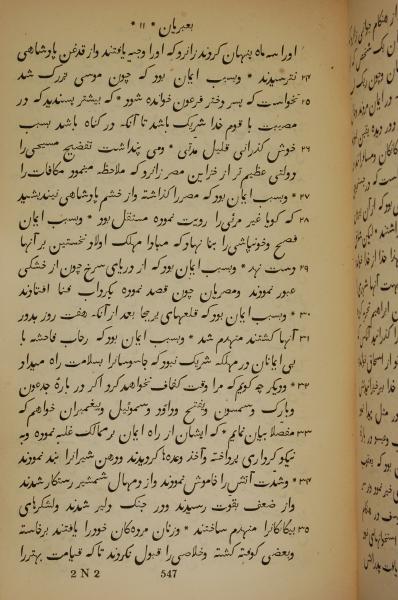 بعبریان * ۱۱ *
اورا سه ماه پنهان کردند زانرو که اورا وجیه یافتند و از قدغن پادشاهی
۲۴ نترسیدند * وبسبب ایمان بود که چون موسی بزرگ شد
۲۵ نخواست که پسر دختر فرعون خوانده شود * که بیشتر پسندید که در
مصیبت با قوم خدا شریک باشد تا آنکه در گناه باشد بسبب
۲۶ خوش گذرانی قلیل مدتی * ومی پنداشت تفضیح مسیحی را
دولتی عظیم تر از خزاین مصر زانرو که ملاحظه مینمود مکافات را
۲۷ * وبسبب ایمان بود که مصر را گذاشته واز خشم پادشاهی نیندیشید
۲۸ که گویا غیر مرئی را رویت نموده مستقل بود * وبسبب ایمان
فصح وخونپاشی را بنا نهاد که مبادا مهلک اولاد نخستین بر آنها
۲۹ دست نهد * وبسبب ایمان بود که از دریای سرخ چون از خشکی
عبور نمودند ومصریان چون قصد نموده بگرداب فنا افتادند
۳۰ * وبسبب ایمان بود که قلعهای یریحا بعد از آنکه هفت روز بدور
۳۱ آنها گشتند منهدم شد * وبسبب ایمان بود که رحاب فاحشه با
بی ایمانان در مهلکه شریک نبود که جاسوسانرا بسلامت راه میداد
۳۲ * ودیگر چه گویم که مرا وقت کفاف نخواهد کرد اگر در بارهٔ جدعون
وبارک وسمسون ویفتح وداود وسموئیل وپیغمبران خواهم که
۳۳ مفصلا بیان نمایم * که ایشان از راه ایمان بر ممالک غلبه نموده وبه
نیکو کرداری پرداخته وأخذ وعدها گردیدند ودهن شیرانرا بند نمودند
۳۴ * وشدت آتش را خاموش نمودند واز دمهای شمشیر رستگار شدند
واز ضعف بقوت رسیدند ودر جنگ دلیر شدند ولشکرهای
۳۵ بیگانگانرا منهدم ساختند * وزنان مردهگان خودرا یافتند برخاسته
وبعضی کوفته گشته وخلاصی را قبول نکردند تا که قیامت بهتر را
2 N 2 547